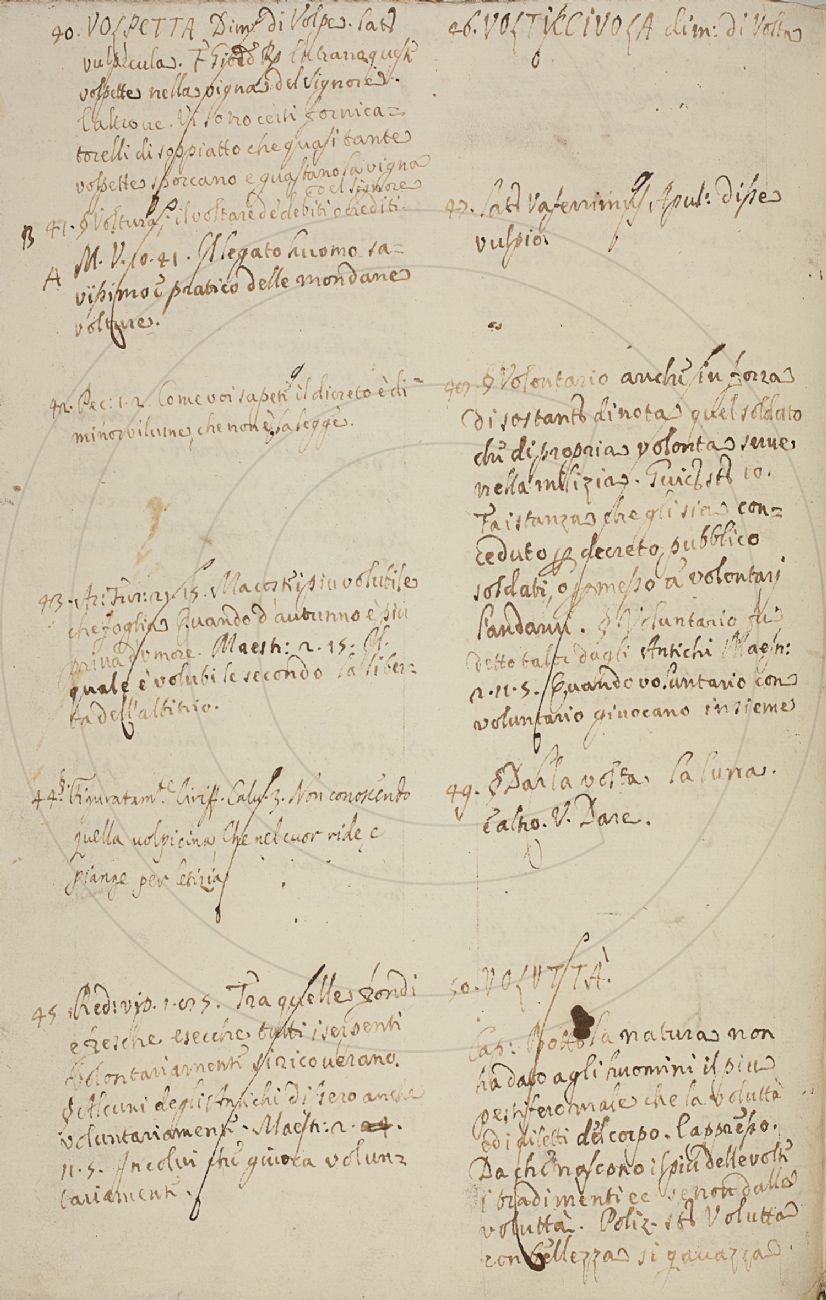 40. VOLPETTA Dim: di Volpe. Lat:
vulpecula. F. Giord.
volpette nella vigna del Signore.
E altrove. Vi sono certi fornica=
torelli di soppiatto che quasi tante
volpette sporcano e guastano la vigna
del Signore
B 41. § Voltura il voltare de debiti e crediti.
A M. V. 10. 41. Il legato huomo sa=
vissimo e pratico delle mondane
volture.
42. Pec: 1. 2. Come voi sapete il dicreto è di=
minor vilume, che non è la legge.
43. Ar: Fur: 21. 15. Ma costei più volubile
che foglia Quando d'autunno è più
priva d'umore. Maestr: 2. 15. Il
quale è volubile secondo la liber=
ta dell'albitrio.
44. § Figuratam.te Ciriff. Calv. 3. Non conoscendo
quella volpicina Che nel cuor ride, e
piange per letizia
45. Red: vip. 1. Tra quelle frondi
e fresche e secche tutti i serpenti
volontariamente si ricoverano.
§ Alcuni degli Antichi dissero anche
voluntariamente. Maestr: 2.
11. 5. In colui che giuoca volun=
tariamente.
46. VOLTICCIVOLA dim: di Volta
47. Lat: Vaferrimus, Apul: disse
vulpio.
§ Volontario anche in forza
di sostant: di nota quel soldato
che di propria volonta serve
nella milizia. Guicc: st: 10.
Fa istanza che gli sia con=
ceduto per decreto pubblico
soldati, o permesso a volontarj
l'andarvi. § Voluntario fu
detto dagli Antichi Maestr:
2. 11. 5. Quando voluntario con
voluntario giuocano insieme
49. § Dar la volta la luna.
e altro. V. Dare.
50. VOLUTTÀ.
Lap: la natura non
ha dato agli huomini il più
pestifero male che la voluttà
ed i diletti del corpo. E appresso.
Da che nascono il più delle volte
i tradimenti ec se non dalla
voluttà. Poliz. st: Volutta
con bellezza si gavazza.